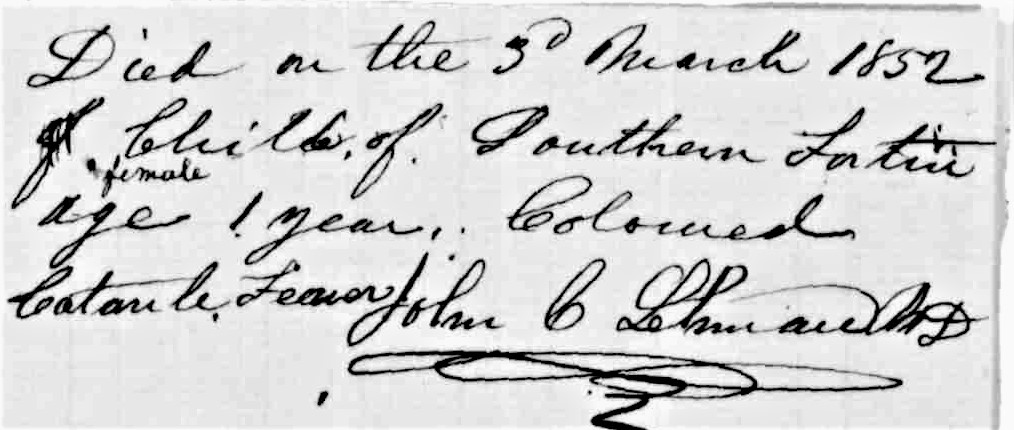 Died on the 3d March 1852
A Child of Southern Fortin
female
age 1 year. Coloured
Catarrle Feaver John C Lehman MD